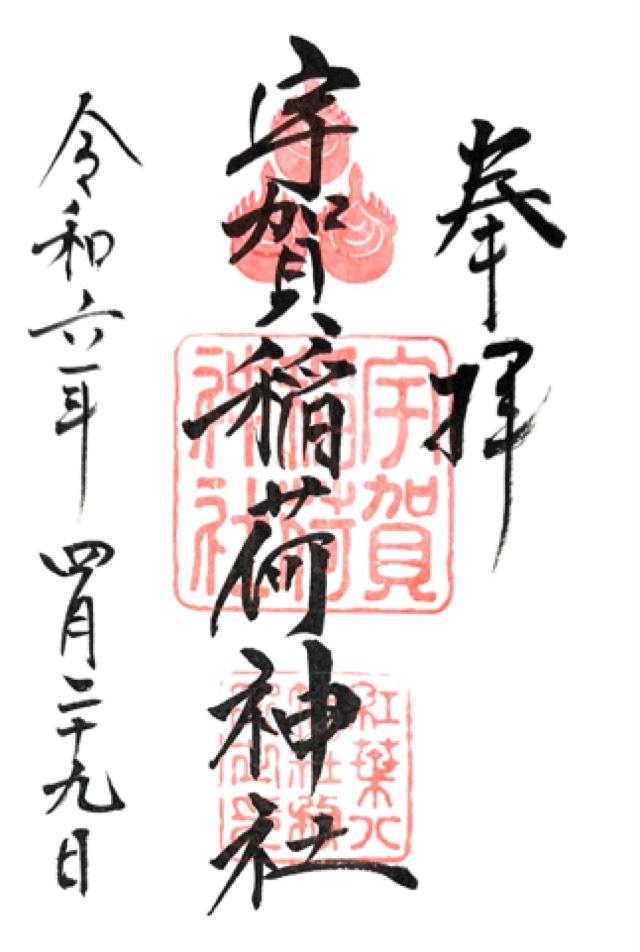 奉拝
宇賀稲荷神社
宇賀
稲荷
神社
紅葉八
令和六年 四月二十九日